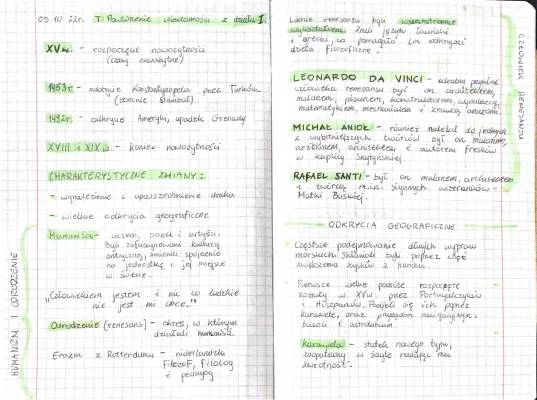 05.10.22r. T: Powtórzenie wiadomości z działu I
XV w. - rozpoczęcie nowożytności
(czasy nowożytne)
1453r. - zdobycie Konstantynopola przez Turków
(obecnie Stambuł)
1492r. - odkrycie Ameryki, upadek Grenady
XVIII i XIX w. - koniec nowożytności
CHARAKTERYSTYCZNE ZMIANY:
- wynalezienie i upowszechnienie druku
- wielkie odkrycia geograficzne
HUMANIZM I ODRODZENIE
Humaniści - uczeni, poeci i artyści.
Byli zafascynowani kulturą
antyczną, zmienili spojrzenie
na jednostkę i jej miejsce
w świecie.
"Człowiekiem jestem i nic co ludzkie
nie jest mi obce."
Odrodzenie (renesans) - okres, w którym
działali humaniści
Erazm z Rotterdamu - niderlandzki
filozof, filolog
i pedagog
CZŁOWIEK RENESANSU
Ludzie renesansu byli wszechstronnie
wykształceni. Znali języki łaciński
i grecki, co pomagało im odkrywać
dzieła filozoficzne.
LEONARDO DA VINCI - idealny przykład
człowieka renesansu był on architektem,
malarzem, pisarzem, konstruktorem, wynalazcą,
matematykiem, mechanikiem i znawcą anatomii.
MICHAŁ ANIOŁ - również należał do jednych
z wybitniejszych twórców był on malarzem,
rzeźbiarzem, architektem i autorem fresków
w kaplicy Sykstyńskiej.
RAFAEL SANTI - był on malarzem, architektem
i twórcą m.in. słynnych wizerunków
Matki Boskiej.
ODKRYCIA GEOGRAFICZNE
Częstsze podejmowanie długich wypraw
morskich. Skłaniali byli poprzez chęć
zwiększenia zysków z handlu.
Pierwsze wielkie podróże rozpoczęte
zostały w XV w. przez Portugalczyków
i Hiszpanów. Podjęli się ich poprzez
karawele, oraz przyrządom nawigacyjnym:
busoli i astrolabium.
Karawela - statek nowego typu,
zaopatrzony w żagle nadając mu
zwrotność.